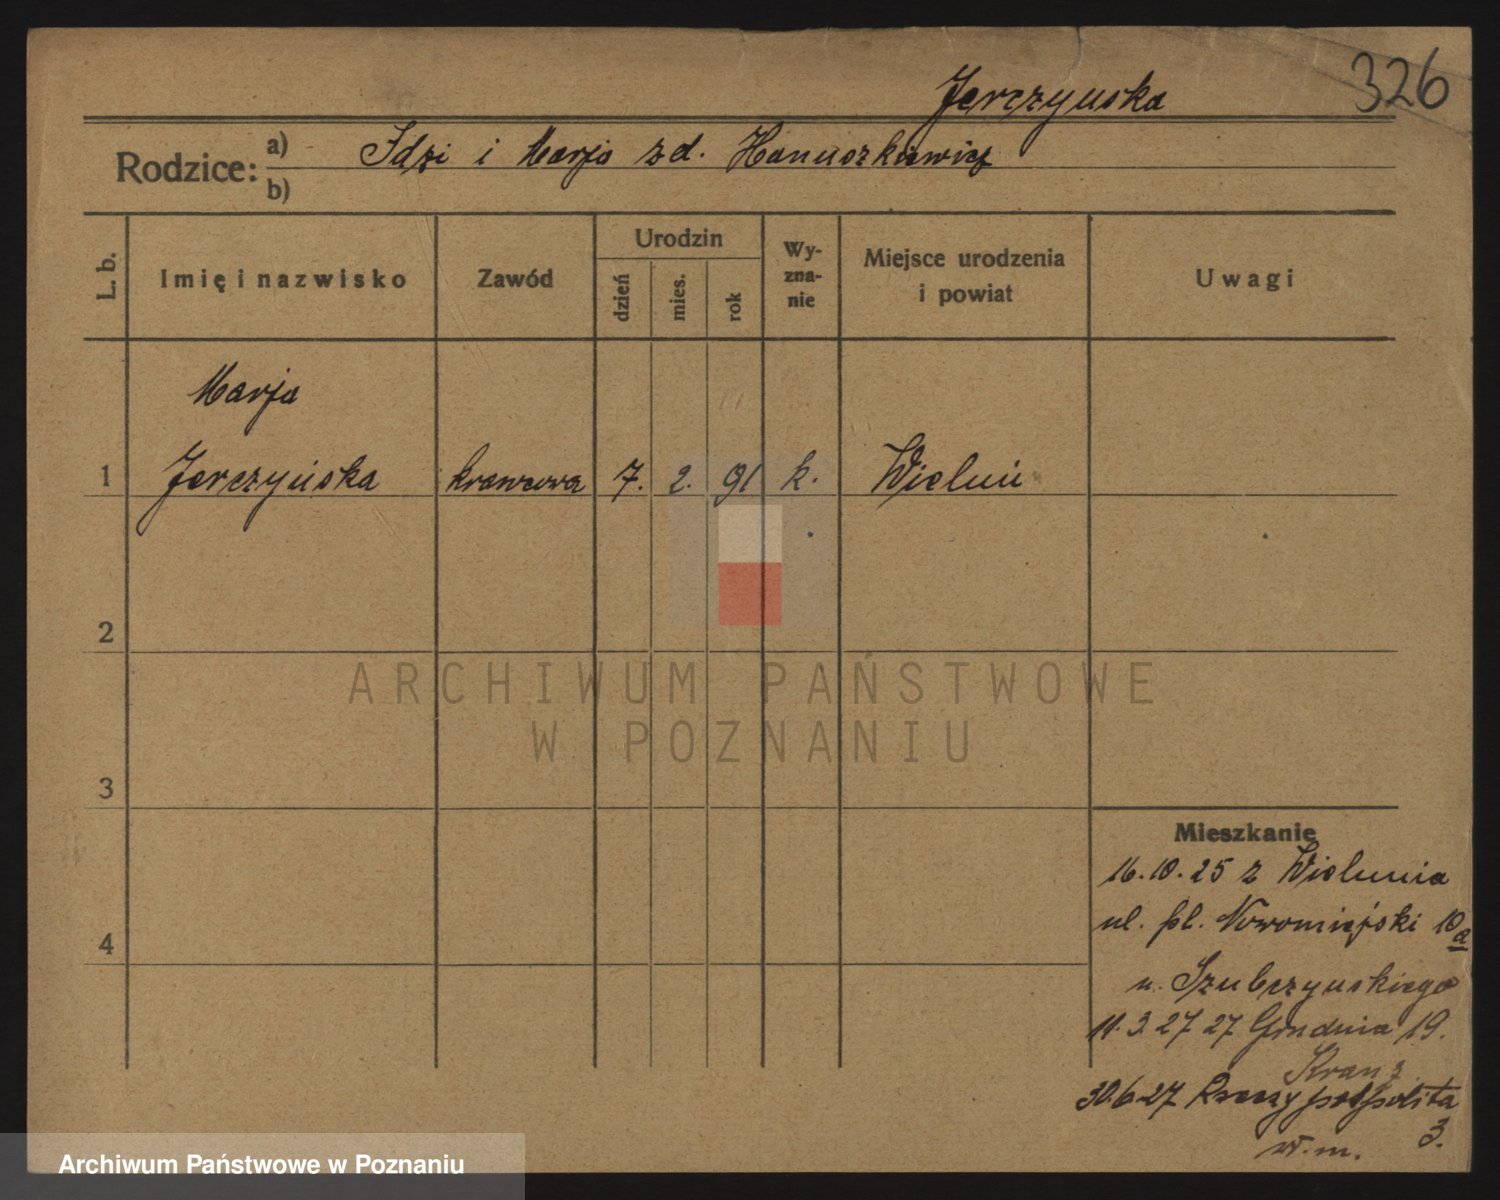 326
Jerczyńska
Rodzice: a) Idzi i Marja z d. Hanuszkiewicz
b)
L. b. Imię i nazwisko Zawód Urodzin dzień mies. rok Wy-zna-nie Miejsce urodzenia i powiat Uwagi
Marja
1 Jerczyńska krawcowa 7. 2. 91 k. Wieluń
2
ARCHIWUM PAŃSTWOWE
W POZNANIU
3
Mieszkanie
16.10.25 z Wielunia
ul. pl. Nowomiejski 10a
4
u. Szubczyńskiego
11.3.27 27 Grudnia 19.
Kranz
30.6.27 Rzeczypospolita
3.
w.m.
Archiwum Państwowe w Poznaniu